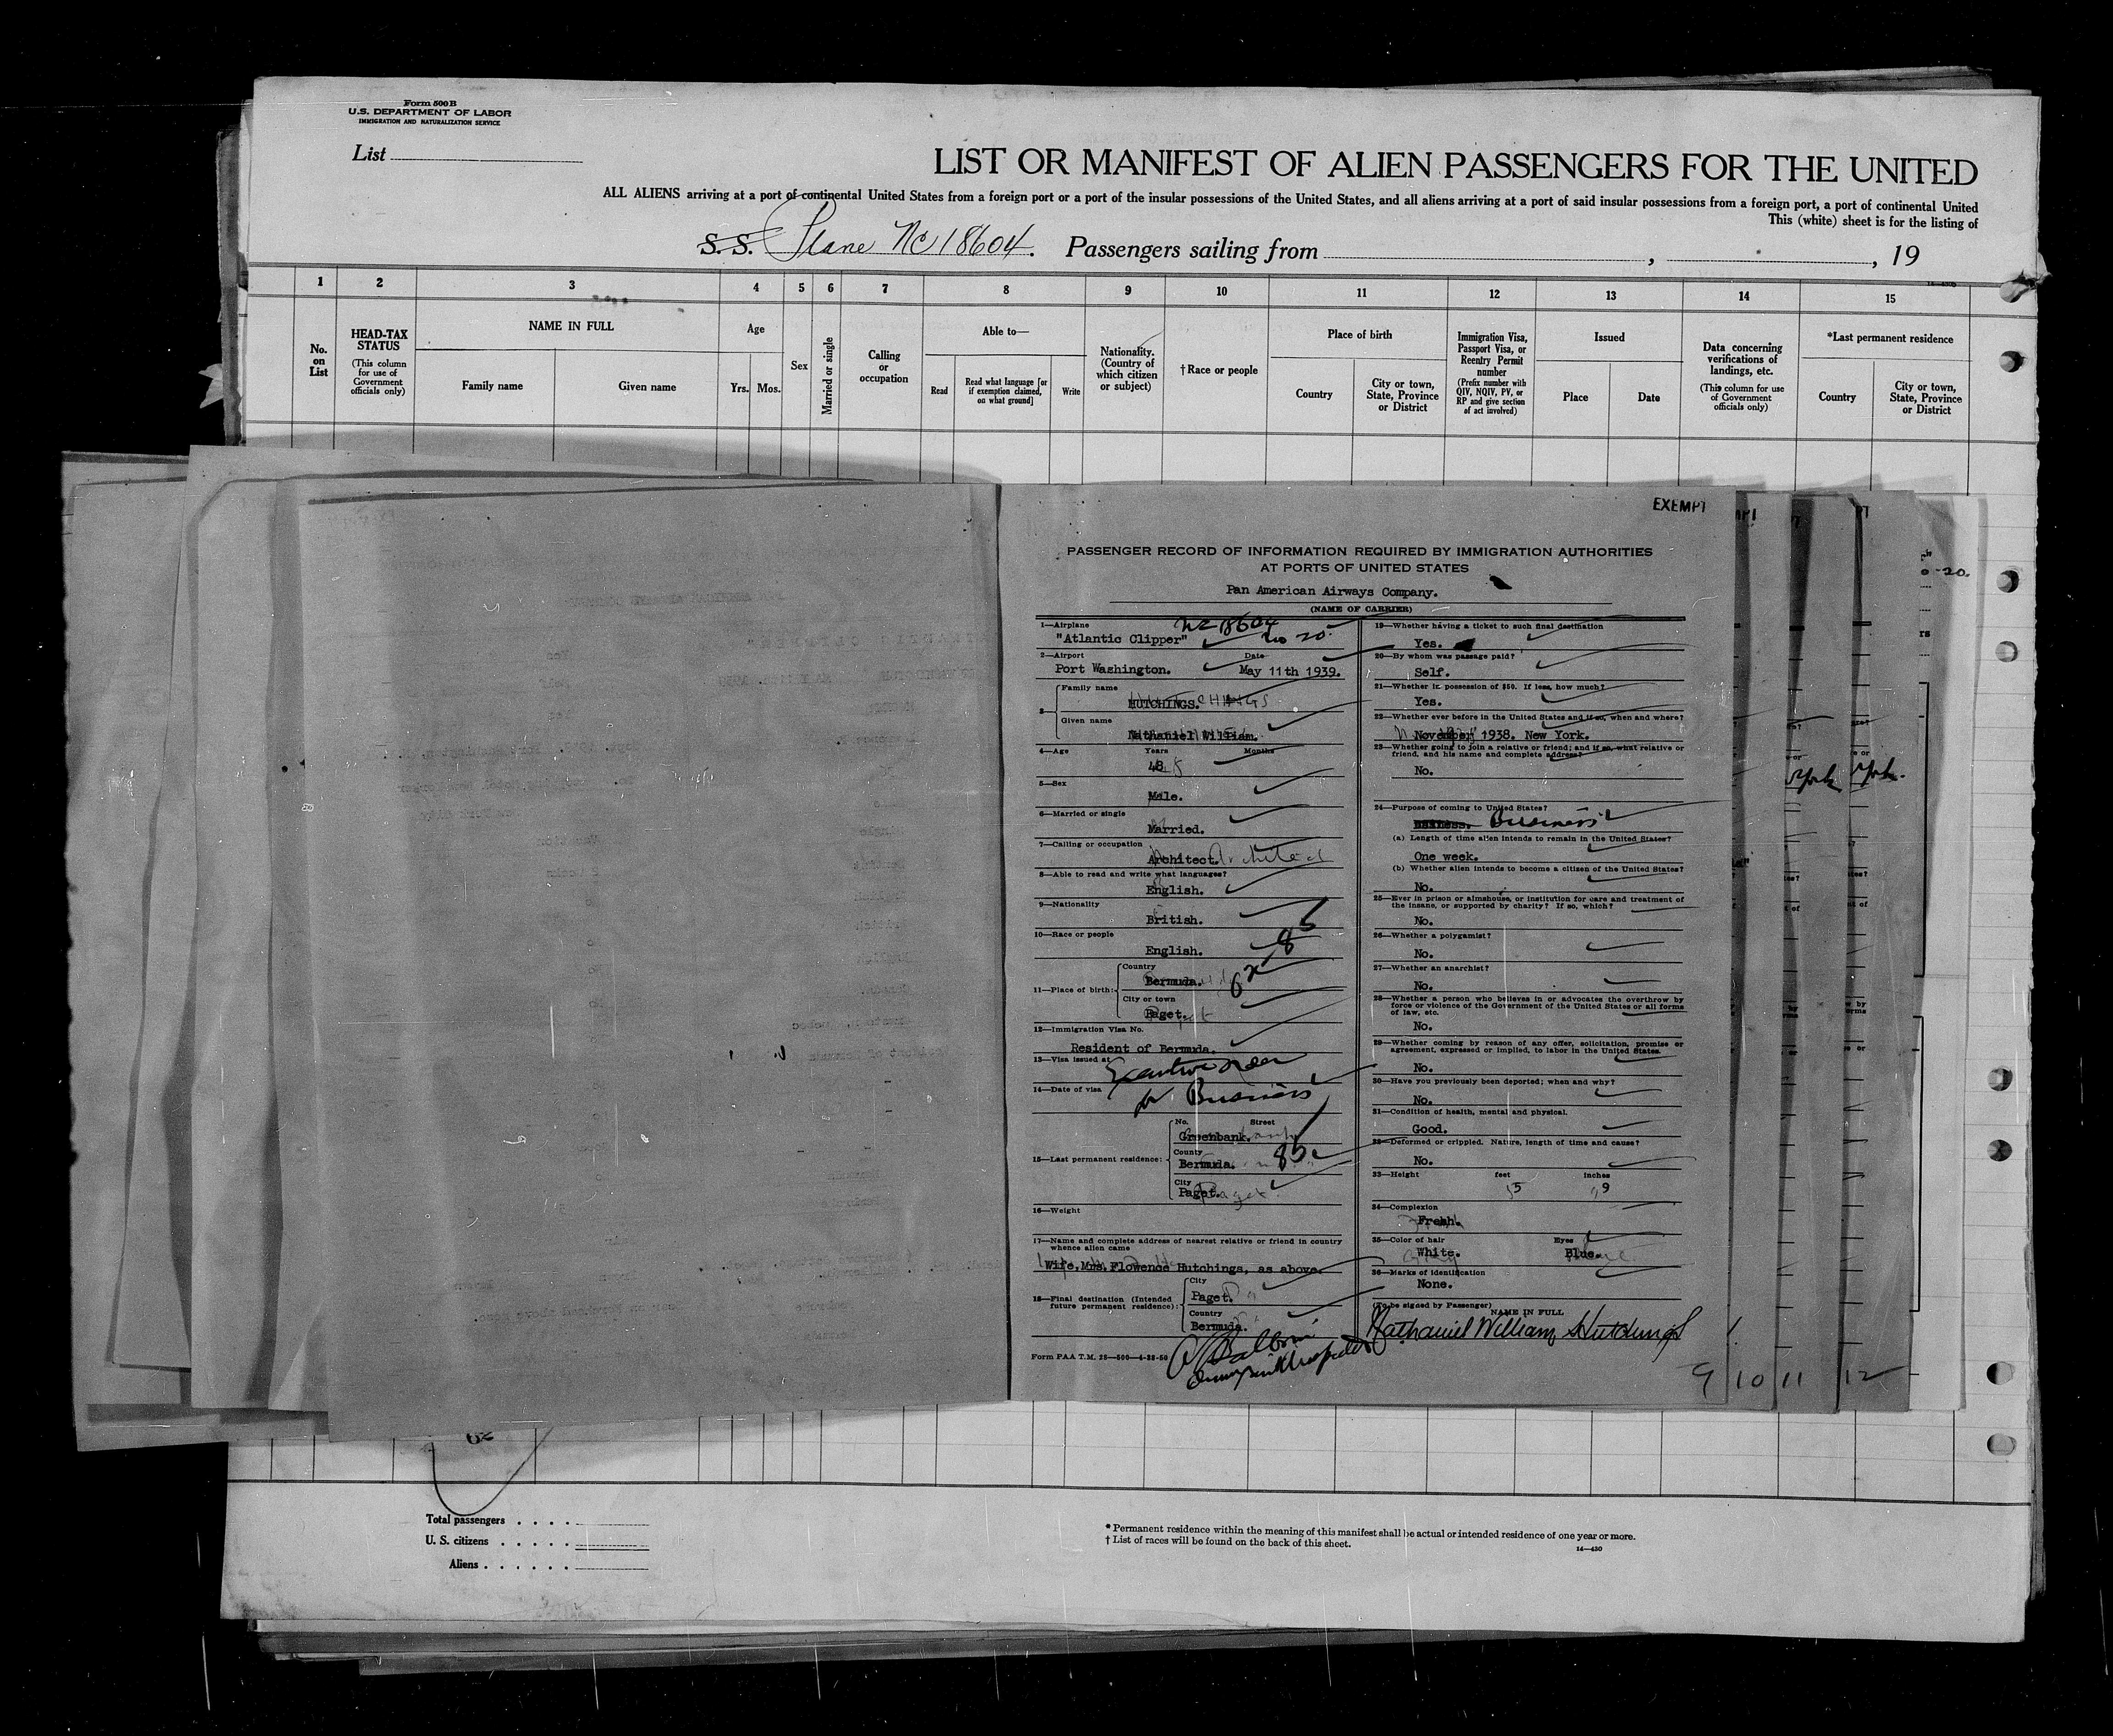 Form 500 B
U.S. DEPARTMENT OF LABOR
IMMIGRATION AND NATURALIZATION SERVICE
List
LIST OR MANIFEST OF ALIEN PASSENGERS FOR THE UNITED
ALL ALIENS arriving at a port of continental United States from a foreign port or a port of the insular possessions of the United States, and all aliens arriving at a port of said insular possessions from a foreign port, a port of continental United
This (white) sheet is for the listing of
S. S. Plane NC 18604. Passengers sailing from , , 19
1 2 3 4 5 6 7 8 9 10 11 12 13 14 15
No. on List
HEAD-TAX STATUS
(This column for use of Government officials only)
NAME IN FULL
Family name Given name
Age
Yrs. Mos.
Sex
Married or single
Calling or occupation
Able to—
Read
Read what language [or if exemption claimed, on what ground]
Write
Nationality. (Country of which citizen or subject)
† Race or people
Place of birth
Country
City or town, State, Province or District
Immigration Visa, Passport Visa, or Reentry Permit number
(Prefix number with QIV, NQIV, PV, or RP and give section of act involved)
Issued
Place Date
Data concerning verifications of landings, etc.
(This column for use of Government officials only)
*Last permanent residence
Country
City or town, State, Province or District
EXEMPT
PASSENGER RECORD OF INFORMATION REQUIRED BY IMMIGRATION AUTHORITIES
AT PORTS OF UNITED STATES
Pan American Airways Company.
(NAME OF CARRIER)
1—Airplane NC 18604
"Atlantic Clipper" No 20.
2—Airport Date
Port Washington. May 11th 1939.
3— Family name
HUTCHINGS.
Given name
Nathaniel William.
4—Age Years Months
48
5—Sex
Male.
6—Married or single
Married.
7—Calling or occupation
Architect. Architect
8—Able to read and write what languages?
English.
9—Nationality
British.
10—Race or people
English.
11—Place of birth: Country
Bermuda.
City or town
Paget.
12—Immigration Visa No.
Resident of Bermuda.
13—Visa issued at
Executive order
14—Date of visa
for Business
15—Last permanent residence: No. Street
Greenbank.
County
Bermuda. 85
City
Paget.
16—Weight
17—Name and complete address of nearest relative or friend in country whence alien came
Wife, Mrs. Flowence Hutchings, as above.
18—Final destination (Intended future permanent residence): City
Paget.
Country
Bermuda.
Form PAA T.M. 25—500—4-28-50
19—Whether having a ticket to such final destination
Yes.
20—By whom was passage paid?
Self.
21—Whether in possession of $50. If less, how much?
Yes.
22—Whether ever before in the United States and if so, when and where?
November 1938. New York.
23—Whether going to join a relative or friend; and if so, what relative or friend, and his name and complete address?
No.
24—Purpose of coming to United States?
Business
(a) Length of time alien intends to remain in the United States?
One week.
(b) Whether alien intends to become a citizen of the United States?
No.
25—Ever in prison or almshouse, or institution for care and treatment of the insane, or supported by charity? If so, which?
No.
26—Whether a polygamist?
No.
27—Whether an anarchist?
No.
28—Whether a person who believes in or advocates the overthrow by force or violence of the Government of the United States or all forms of law, etc.
No.
29—Whether coming by reason of any offer, solicitation, promise or agreement, expressed or implied, to labor in the United States.
No.
30—Have you previously been deported; when and why?
No.
31—Condition of health, mental and physical.
Good.
32—Deformed or crippled. Nature, length of time and cause?
No.
33—Height feet inches
5 9
34—Complexion
Fresh.
35—Color of hair Eyes
White. Blue.
36—Marks of identification
None.
(To be signed by Passenger)
NAME IN FULL
Nathaniel William Hutchings
9 10 11 12
Total passengers
U. S. citizens
Aliens
* Permanent residence within the meaning of this manifest shall be actual or intended residence of one year or more.
† List of races will be found on the back of this sheet.
14—430